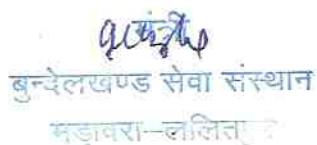 मंत्री
बुन्देलखण्ड सेवा संस्थान
मड़ावरा-ललितपुर